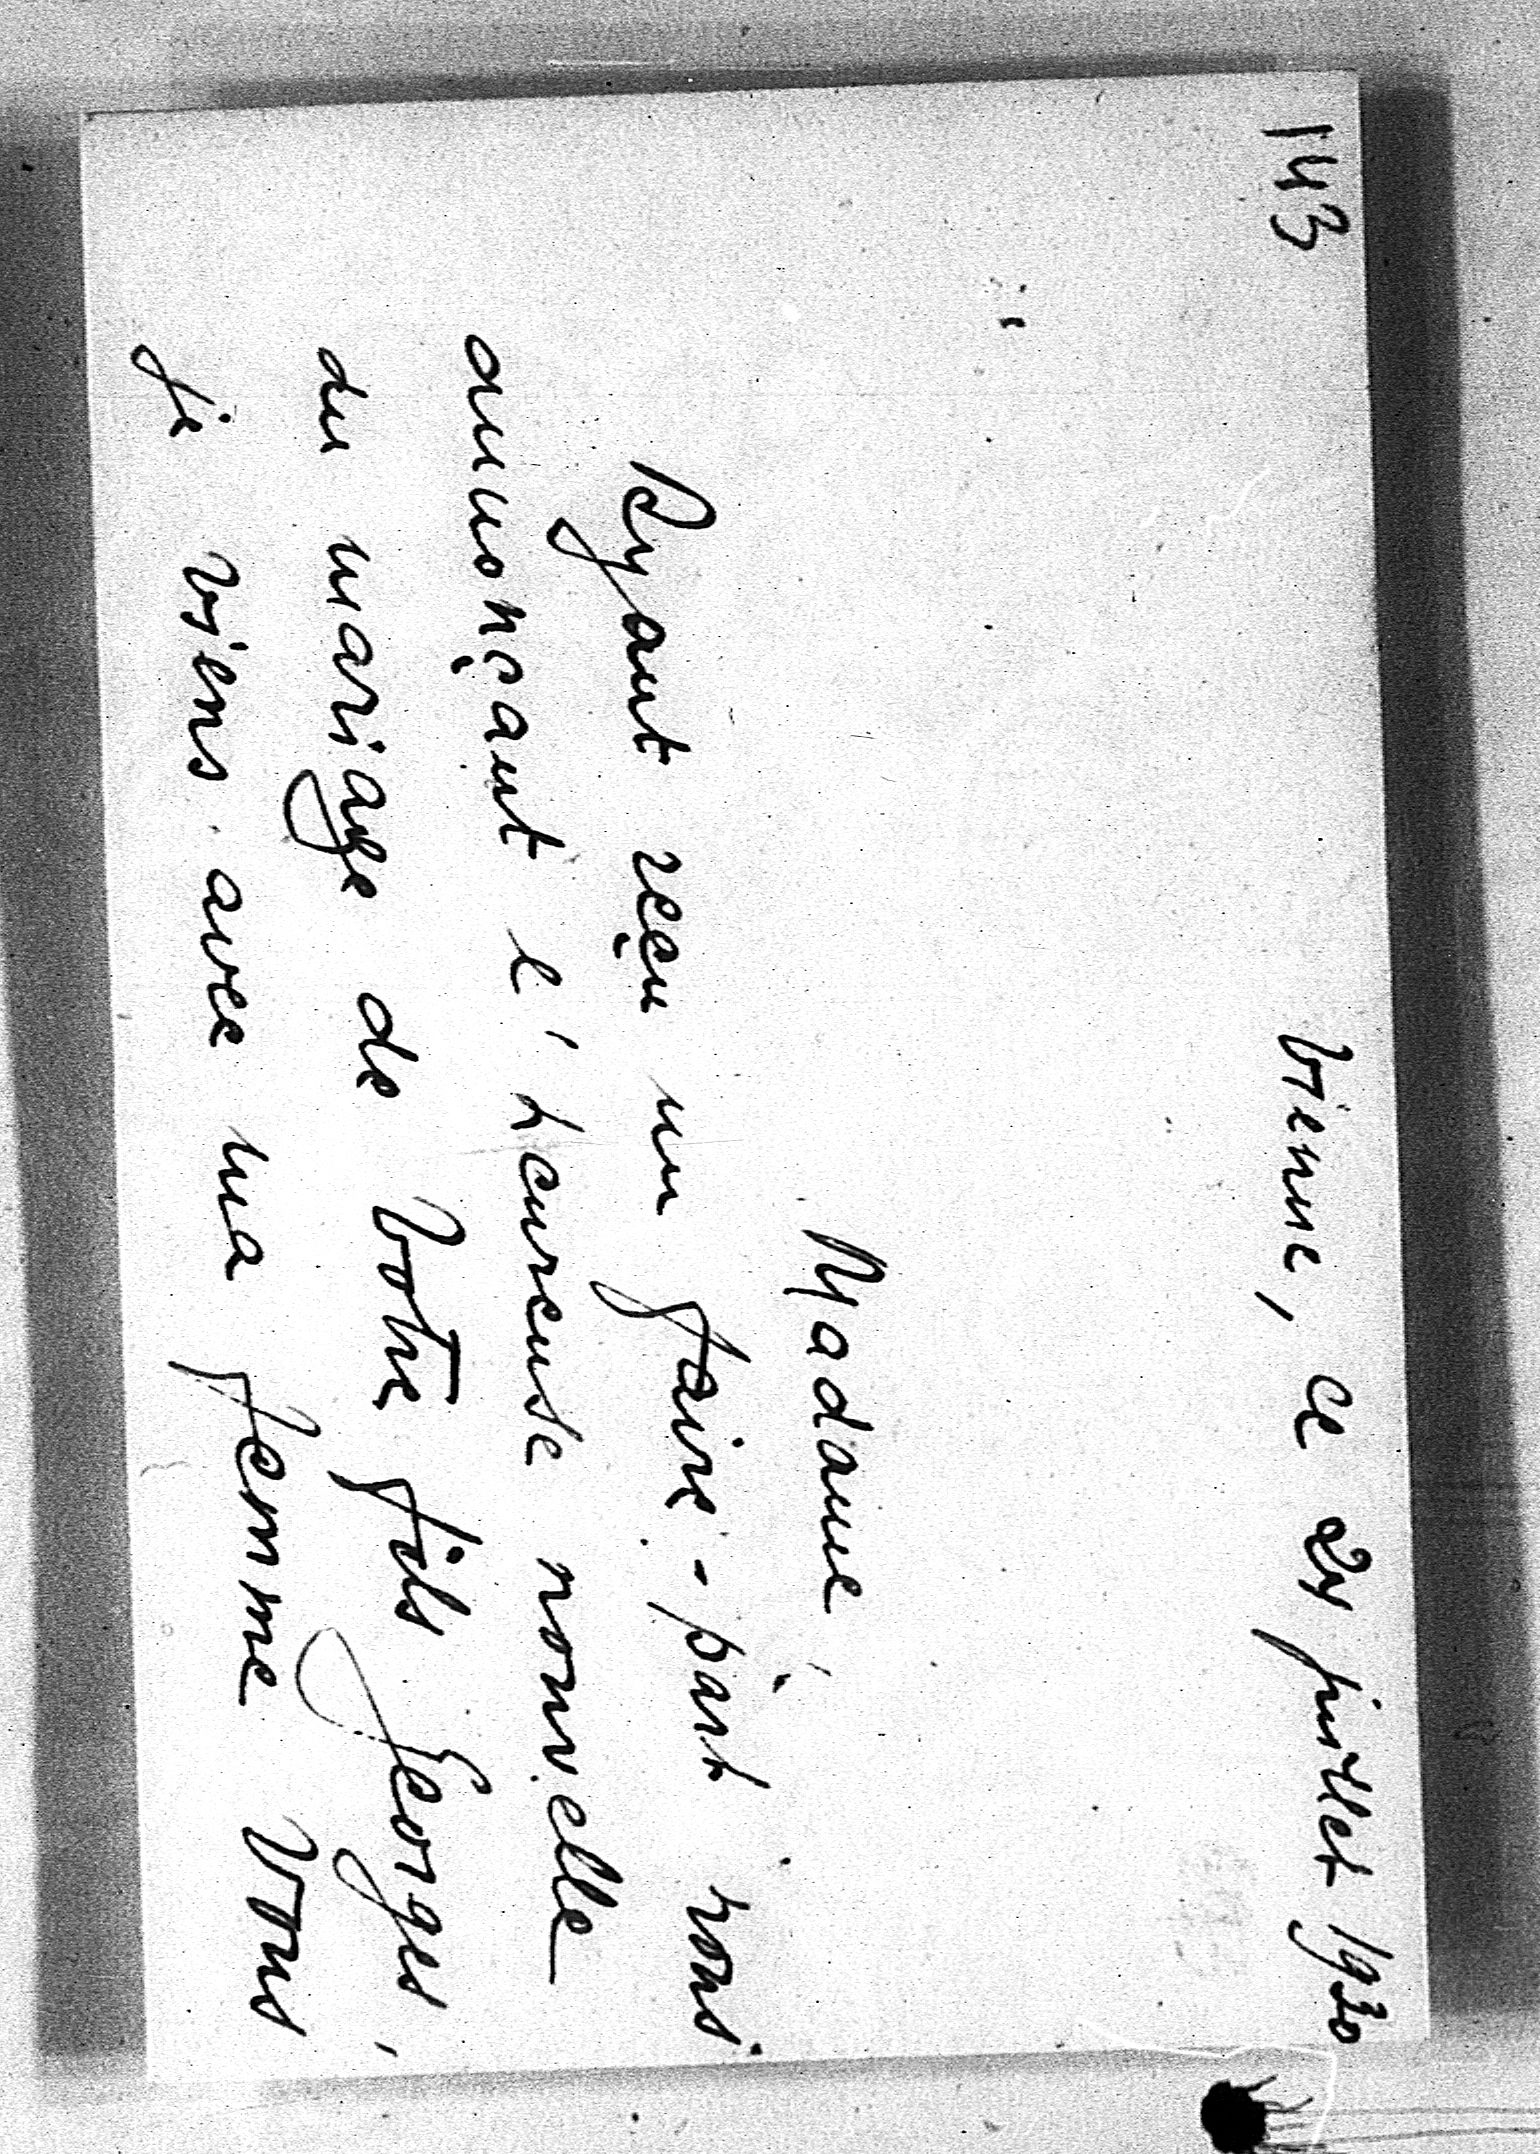 143
Vienne, ce 27 juillet 1930
Madame,
Ayant reçu un faire-part nous
annonçant l'heureuse nouvelle
du mariage de Votre fils Georges,
je viens avec ma femme Vous